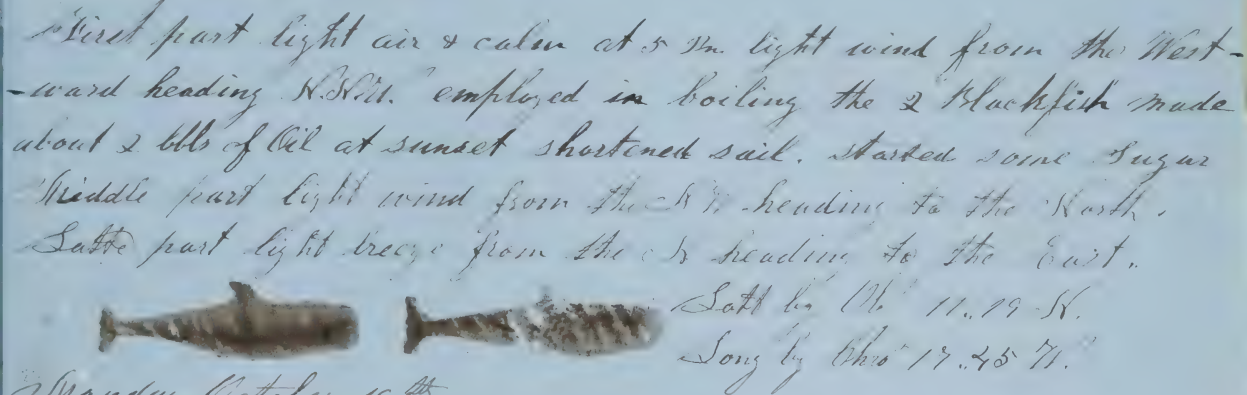 First part light air & calm at 5 Pm. light wind from the West-
-ward heading N.N.W. employed in boiling the 2 Blackfish made
about 2 bbls of Oil at sunset shortened sail. started some Sugar
Middle part light wind from the heading to the North.
Latte part light breeze from the heading to the East.
Latt by Ob. 11..19 N.
Long by Chro 17..45 W.
Monday October